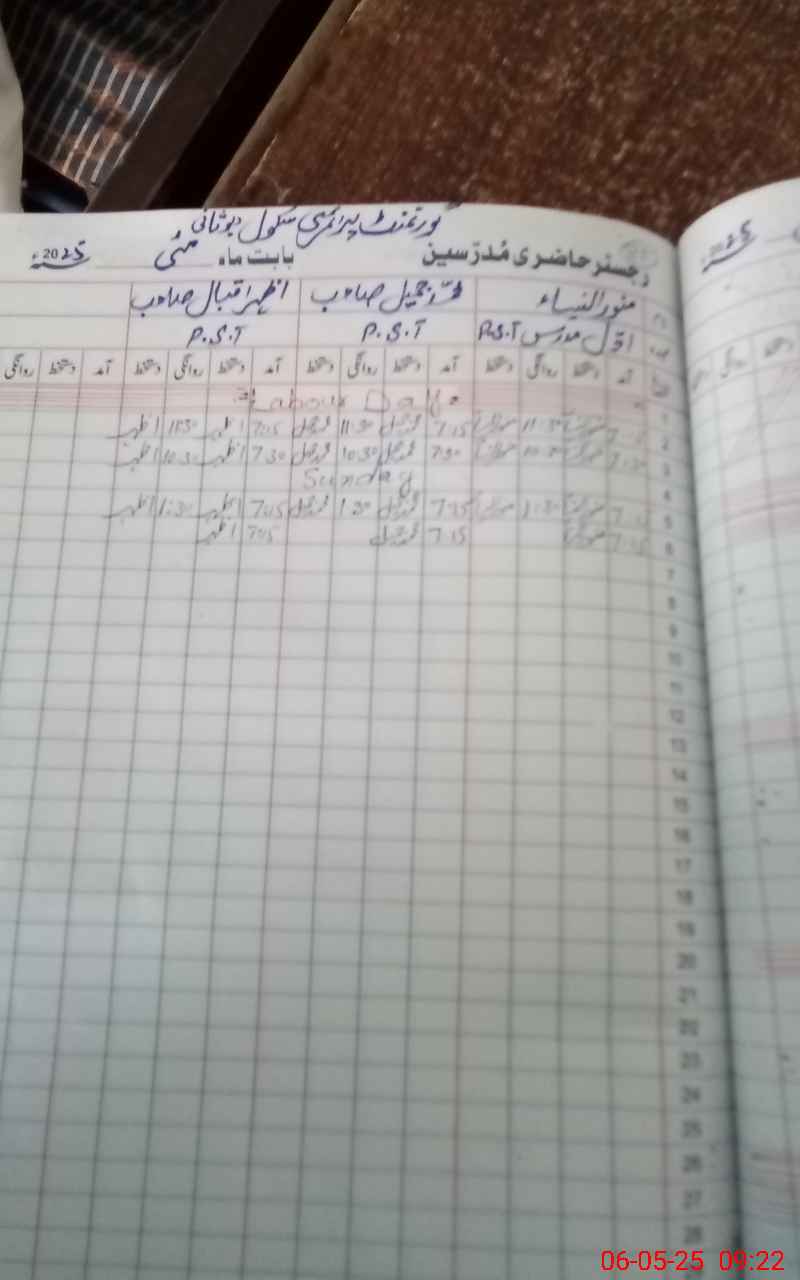 گورنمنٹ پرائمری سکول
رجسٹر حاضری مُدرّسین بابت ماہ مئی سنہ 2025ء
منور النساء محمد جمیل صاحب اظہر اقبال صاحب
اوّل مدرس P.S.T P.S.T P.S.T
آمد دستخط روانگی دستخط آمد دستخط روانگی دستخط آمد دستخط روانگی دستخط آمد دستخط روانگی
1 Labour Day
2 7:15 11:30 7:15 محمد جمیل 11:30 محمد جمیل 7:15 اظہر 11:30 اظہر
3 7:30 10:30 7:30 محمد جمیل 10:30 محمد جمیل 7:30 اظہر 10:30 اظہر
4 Sunday
5 7:15 1:30 7:15 محمد جمیل 1:30 محمد جمیل 7:15 اظہر 1:30 اظہر
6 7:15 7:15 محمد جمیل 7:15 اظہر
7
8
9
10
11
12
13
14
15
16
17
18
19
20
21
22
23
24
25
26
27
28
2025
06-05-25 09:22